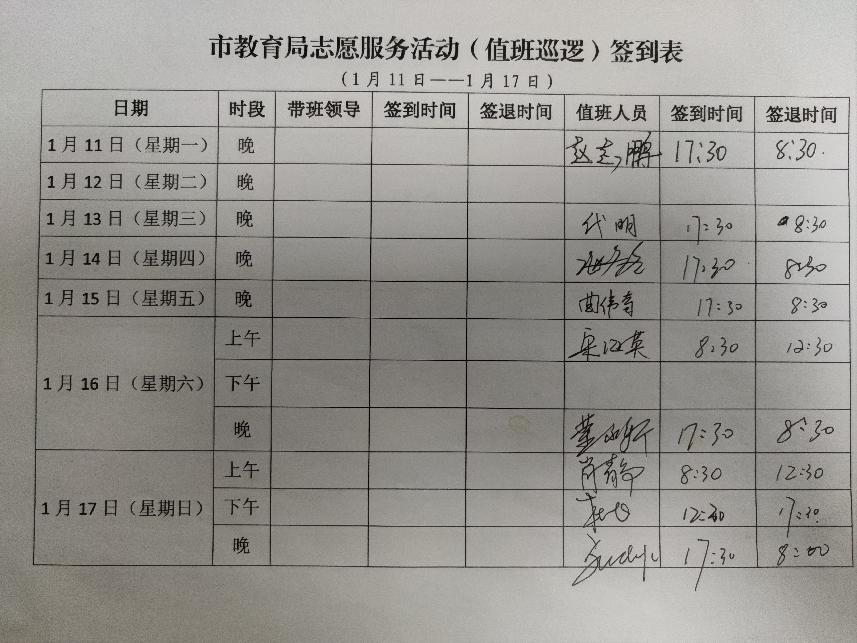 市教育局志愿服务活动（值班巡逻）签到表
（1月11日——1月17日）
日期 时段 带班领导 签到时间 签退时间 值班人员 签到时间 签退时间
1月11日（星期一） 晚 赵志鹏 17:30 8:30
1月12日（星期二） 晚
1月13日（星期三） 晚 代明 17:30 8:30
1月14日（星期四） 晚 17:30 8:30
1月15日（星期五） 晚 曲伟奇 17:30 8:30
1月16日（星期六） 上午 8:30 12:30
下午
晚 17:30 8:30
1月17日（星期日） 上午 肖静 8:30 12:30
下午 12:30 17:30
晚 17:30 8:00